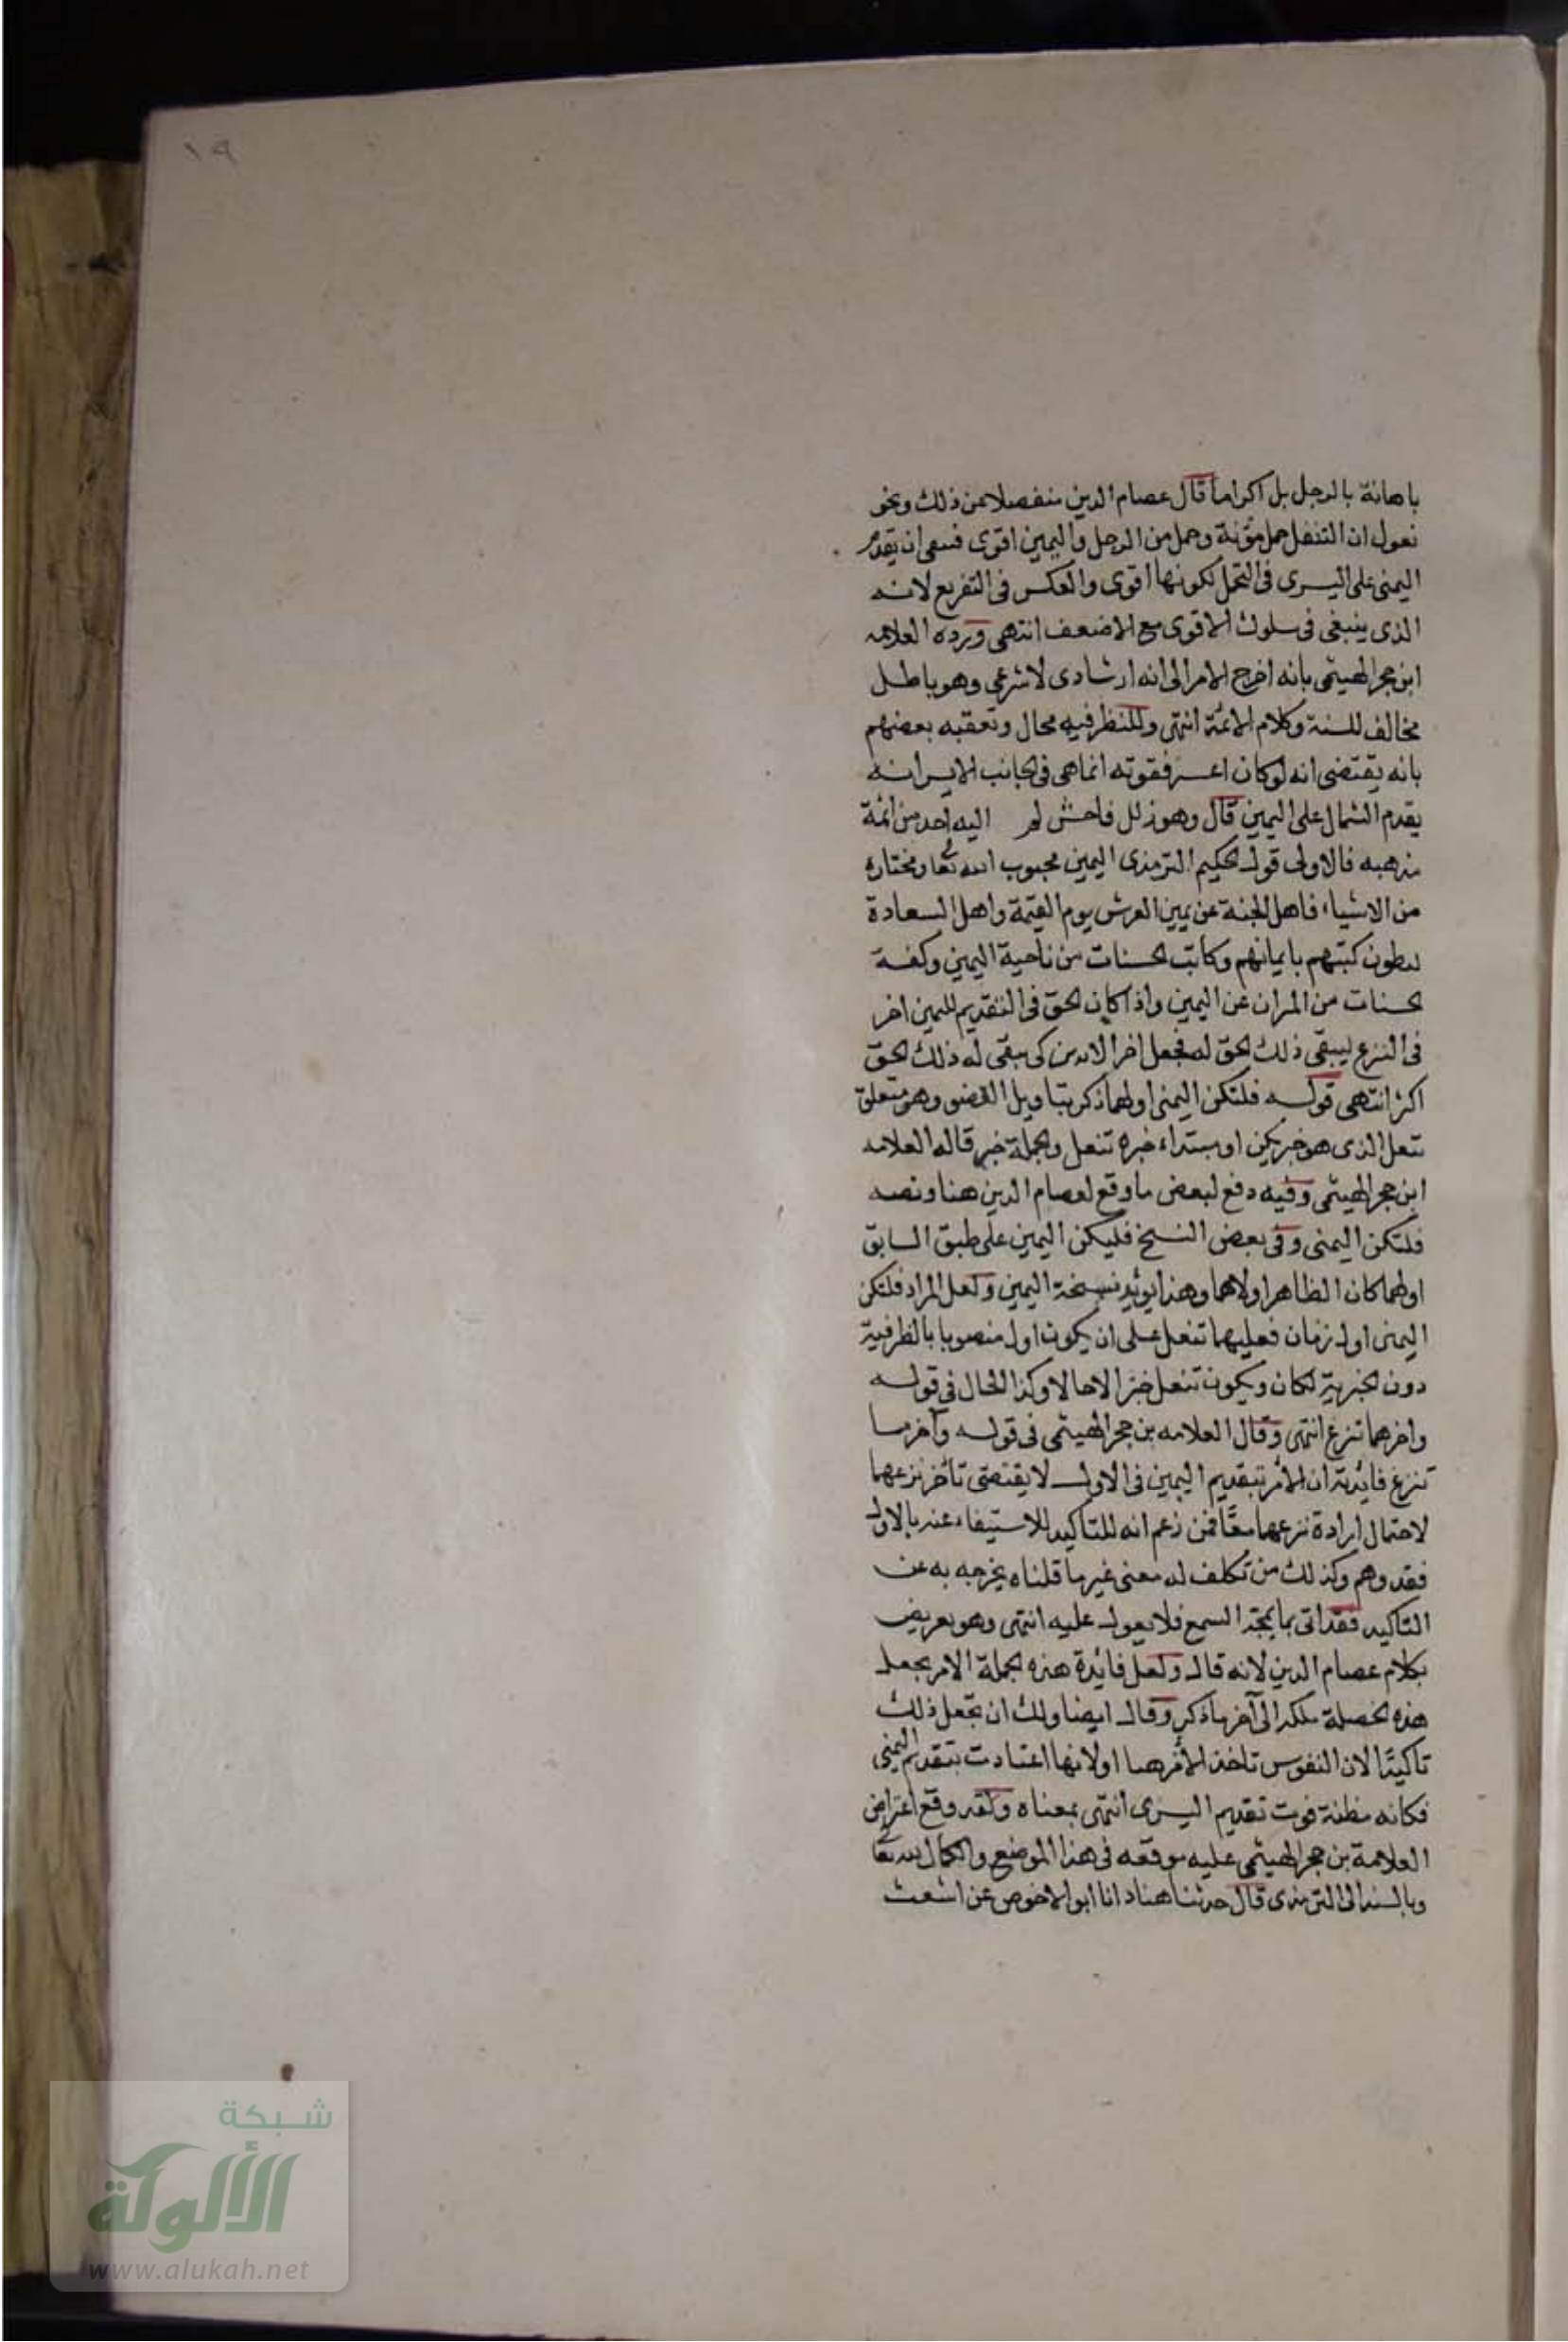 ١٩
باهانة بالرجل بل اكراما قال عصام الدين منفصلا عن ذلك ونحن
نقول ان التنعل حمل مؤنة وحمل من الرجل واليمين اقوى فينبغى ان يقدم
اليمنى على اليسرى فى التحمل لكونها اقوى والعكس فى التفريع لانه
الذى ينبغى فى سلوك الاقوى مع الاضعف انتهى ورده العلامه
ابن حجر الهيتمى بانه اخرج الامر الى انه ارشادى لا شرعى وهو باطل
مخالف للسنة وكلام الائمة انتهى وللنظر فيه مجال وتعقبه بعضهم
بانه يقتضى انه لو كان اعسر فقوته انما هى فى الجانب الايسر انه
يقدم الشمال على اليمين قال وهو زلل فاحش لم اليه احد من ائمة
مذهبه فالاولى قول الحكيم الترمذى اليمين محبوب الله تعا ومختاره
من الاشياء فاهل الجنة عن يمين العرش يوم القيمة واهل السعادة
يعطون كتبهم بايمانهم وكاتب الحسنات من ناحية اليمين وكفة
الحسنات من الميزان عن اليمين واذا كان الحق فى التقديم لليمين اخر
فى النزع ليبقى ذلك الحق له فجعل اخر كى يبقى له ذلك الحق
اكثر انتهى قوله فلتكن اليمنى اولهما ذكر بتاويل العضو وهو متعلق
تنعل الذى هو خبر يكن او مبتداء خبره تنعل والجملة خبر قاله العلامه
ابن حجر الهيتمى وفيه دفع لبعض ما وقع لعصام الدين هنا ونصه
فلتكن اليمنى وفى بعض النسخ فليكن اليمين على طبق السابق
اولهما كان الظاهر اولاهما وهذا يؤيد نسخة اليمين ولعل المراد فلتكن
اليمنى اول زمان فعليهما تنعل على ان يكون اول منصوبا بالظرفية
دون الخبرية لكان ويكون تنعل خبرا لا حالا وكذا الحال فى قوله
واخرهما تنزع انتهى وقال العلامه بن حجر الهيتمى فى قوله وآخرهما
تنزع فايدته ان الامر بتقديم اليمين فى الاول لا يقتضى تأخر نزعها
لاحتمال ارادة نزعهما معًا فمن زعم انه للتاكيد للاستيفاء عنه بالاول
فقد وهم وكذلك من تكلف له معنى غير ما قلناه يخرجه به عن
التاكيد فقد اتى بما يمجه السمع فلا يعول عليه انتهى وهو تعريض
بكلام عصام الدين لانه قال ولعل فايدة هذه الجملة الامر بجعل
هذه الخصلة ملكه الى آخر ما ذكر وقال ايضا ولك ان تجعل ذلك
تاكيدًا لان النفوس تاخذ الامر اولانها اعتادت بتقديم اليمنى
فكانه مظنة فوت تقديم اليسرى انتهى بمعناه ولقد وقع اعتراض
العلامة بن حجر الهيتمى عليه موقعه فى هذا الموضع والكمال لله تعا
وبالسند الى الترمذى قال حدثنا هناد انا ابو الاحوص عن اشعث
شبكة
الألوكة
www.alukah.net